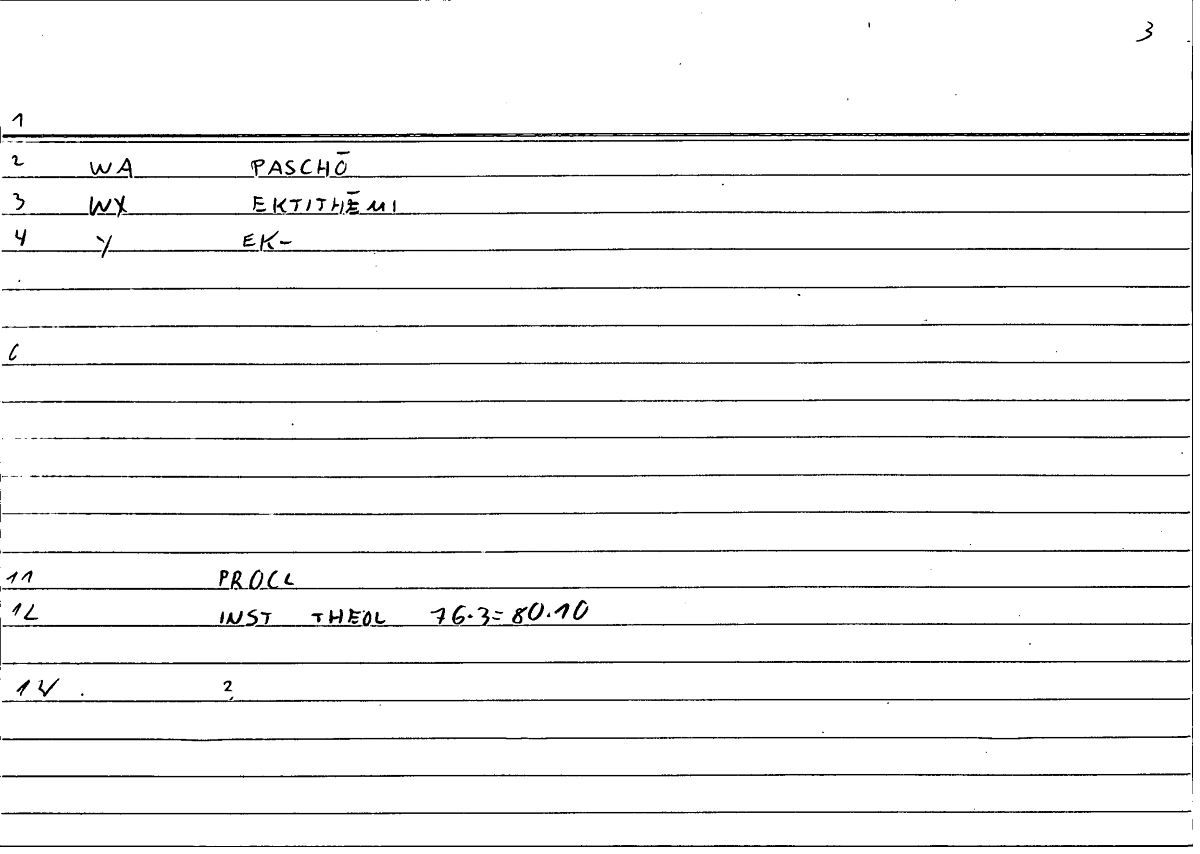 3
1
2 WA PASCHŌ
3 WX EKTITHĒMI
4 Y EK-
6
11 PROCL
12 INST THEOL 76.3=80.10
14 . 2